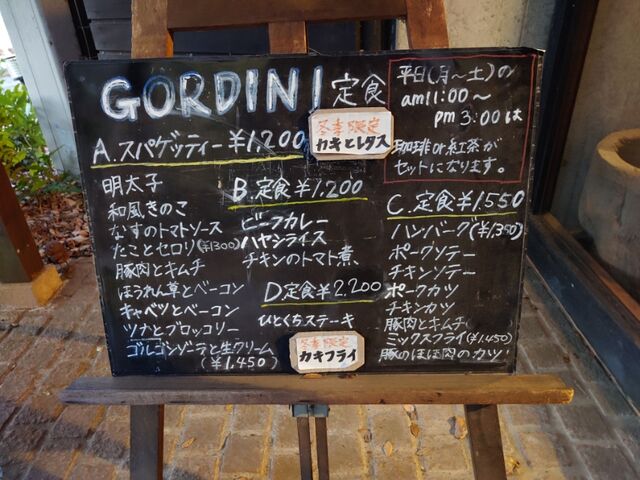 GORDINI 定食
冬季限定
カキとレタス
平日(月～土)の
am11:00～
pm 3:00は
珈琲or紅茶が
セットになります。
A.スパゲッティー¥1,200
明太子
和風きのこ
なすのトマトソース
たことセロリ(¥1300)
豚肉とキムチ
ほうれん草とベーコン
キャベツとベーコン
ツナとブロッコリー
ゴルゴンゾーラと生クリーム
(¥1,450)
B.定食¥1,200
ビーフカレー
ハヤシライス
チキンのトマト煮、
D定食¥2,200
ひとくちステーキ
冬季限定
カキフライ
C.定食¥1,550
ハンバーグ(¥1,350)
ポークソテー
チキンソテー
ポークカツ
チキンカツ
豚肉とキムチ(
ミックスフライ(¥1,450)
豚のほほ肉のカツ